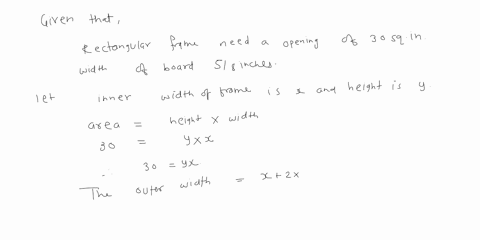 Given that,
Rectangular frame need a opening of 30 sq.in.
width of board 5/8 inches.
let inner width of frame is x and height is y.
area = height x width
30 = y x x
∴ 30 = yx.
The outer width = x + 2x